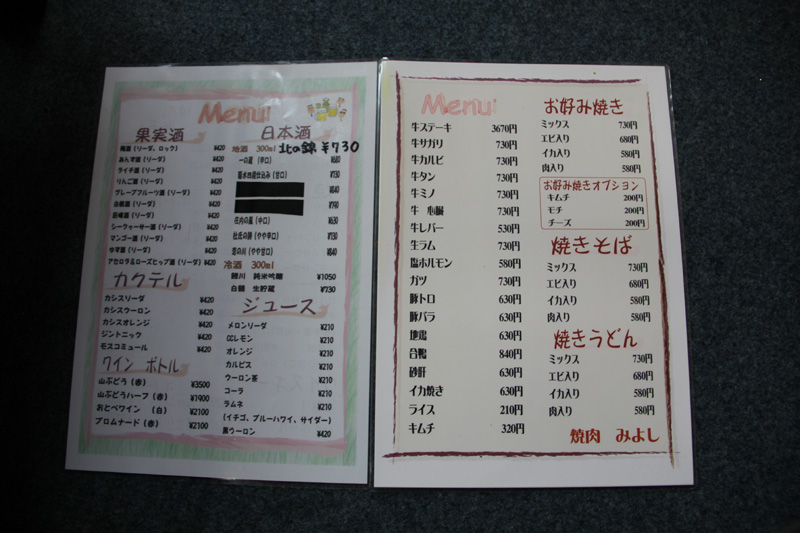 Menu
果実酒
梅酒(ソーダ、ロック) ¥420
あんず酒(ソーダ) ¥420
ライチ酒(ソーダ) ¥420
りんご酒(ソーダ) ¥420
グレープフルーツ酒(ソーダ) ¥420
白桃酒(ソーダ) ¥420
巨峰酒(ソーダ) ¥420
シークヮーサー酒(ソーダ) ¥420
マンゴー酒(ソーダ) ¥420
ゆず酒(ソーダ) ¥420
アセロラ&ローズヒップ酒(ソーダ) ¥420
カクテル
カシスソーダ ¥420
カシスウーロン ¥420
カシスオレンジ ¥420
ジントニック ¥420
モスコミュール ¥420
ワイン ボトル
山ぶどう(赤) ¥3500
山ぶどうハーフ(赤) ¥1900
おとべワイン (白) ¥2100
プロムナード(赤) ¥2100
日本酒
地酒 300ml 北の錦 ¥730
一の蔵 (辛口) ¥680
(甘口) ¥730
¥790
(中口) ¥630
(やや辛口) ¥730
(やや甘口) ¥840
冷酒 300ml
純米吟醸 ¥1050
白鶴 生貯蔵 ¥730
ジュース
メロンソーダ ¥210
CCレモン ¥210
オレンジ ¥210
カルピス ¥210
ウーロン茶 ¥210
コーラ ¥210
ラムネ ¥210
(イチゴ、ブルーハワイ、サイダー)
黒ウーロン ¥420
Menu
牛ステーキ 3670円
牛サガリ 730円
牛カルビ 730円
牛タン 730円
牛ミノ 730円
牛 心臓 730円
牛レバー 530円
生ラム 730円
塩ホルモン 580円
ガツ 730円
豚トロ 630円
豚バラ 630円
地鶏 630円
合鴨 840円
砂肝 630円
イカ焼き 630円
ライス 210円
キムチ 320円
お好み焼き
ミックス 730円
エビ入り 680円
イカ入り 580円
肉入り 580円
お好み焼きオプション
キムチ 200円
モチ 200円
チーズ 200円
焼きそば
ミックス 730円
エビ入り 680円
イカ入り 580円
肉入り 580円
焼きうどん
ミックス 730円
エビ入り 680円
イカ入り 580円
肉入り 580円
焼肉 みよし